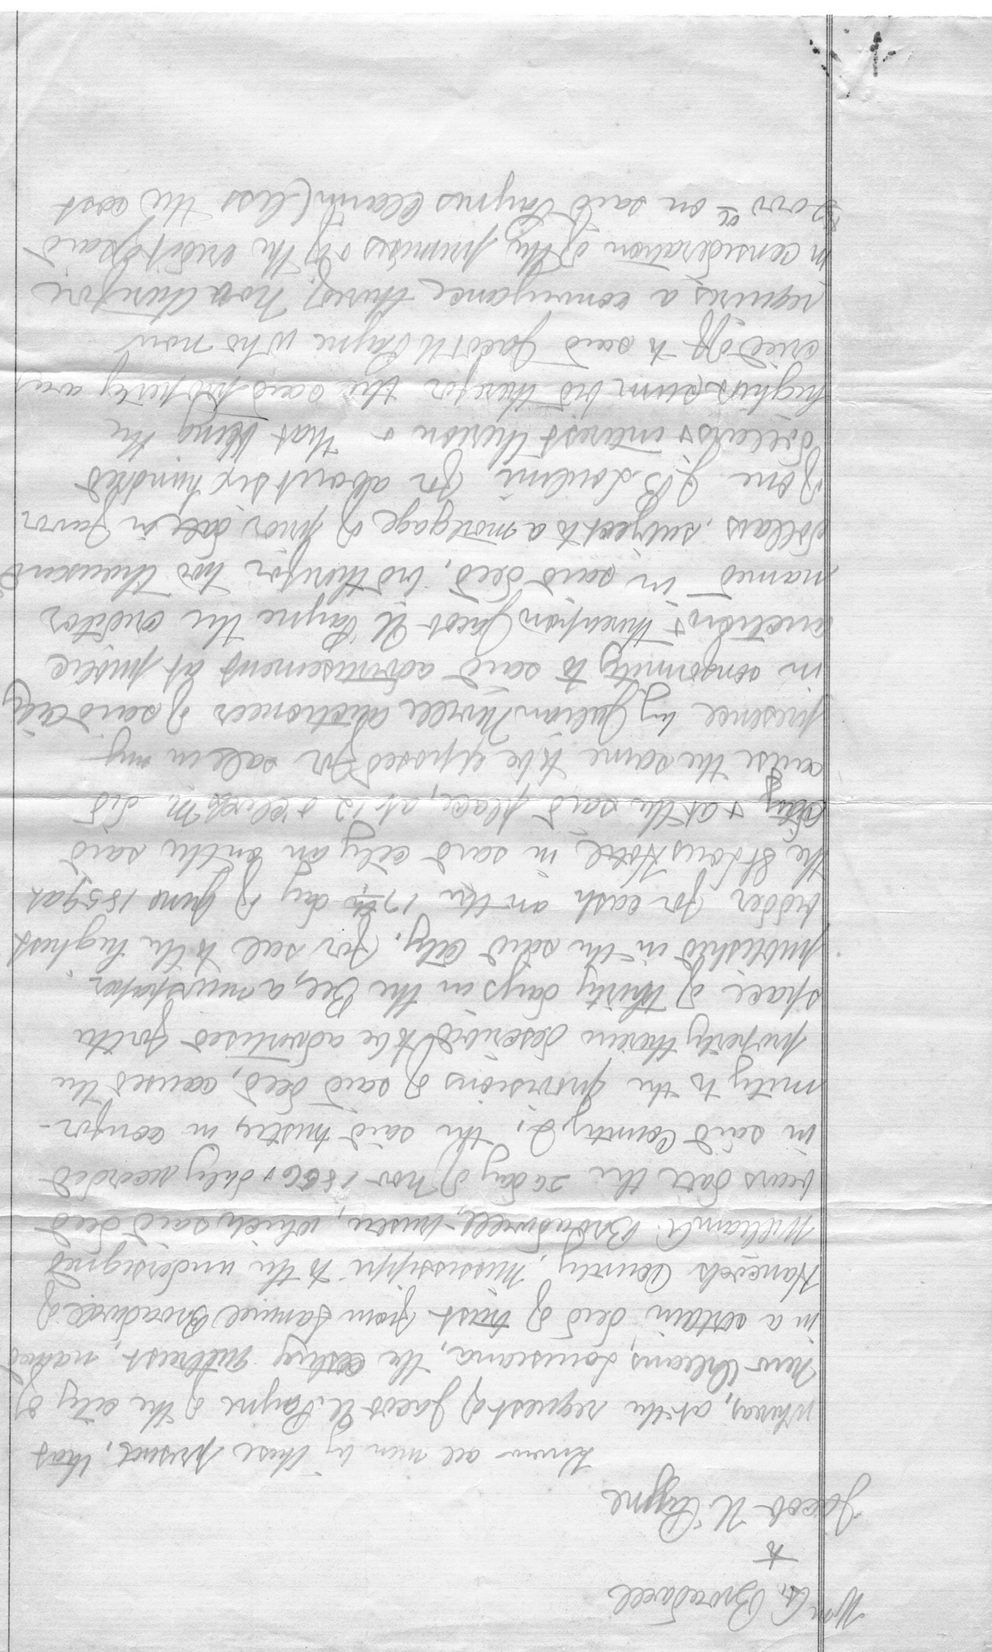 Wm A. Broadwell
to
Jacob U Payne
Know all men by these present, that
whereas, at the request of Jacob U. Payne of the city of
New Orleans, Louisiana, the cestuy quitrust, named
in a certain deed of trust from Samuel Broadwell of
Hancock County, Mississippi to the undersigned
William A. Broadwell trustee, which said deed
bears date the 26 day of Nov 1856 & duly recorded
in said County, the said trustee, in confor-
mity to the provisions of said deed, caused the
property therein described to be advertised for the
space of thirty days in the Bee, a newspaper
published in the said City, for sale to the highest
bidder for cash on the 17th day of June 1859 at
the St Louis Hotel in said city on the said
day & at the said place, at 12 o'clock m. did
cause the same to be exposed for sale in my
presence by Julian Neville auctioneer of said City
in conformity to said advertisement at public
auction & thereupon Jacob U Payne the creditor
named in said deed, bid therefor two thousand
dollars, subject to a mortgage of prior date in favor
of one J.B. for about six hundred
dollars & interest thereon & that being the
highest sum bid therefor the said property was
cried off to said Jacob U Payne who now
requires a conveyance thereof, Now therefore
in consideration of the premises & of the credit of said
$2000 00 on said Paynes claim (less the cost